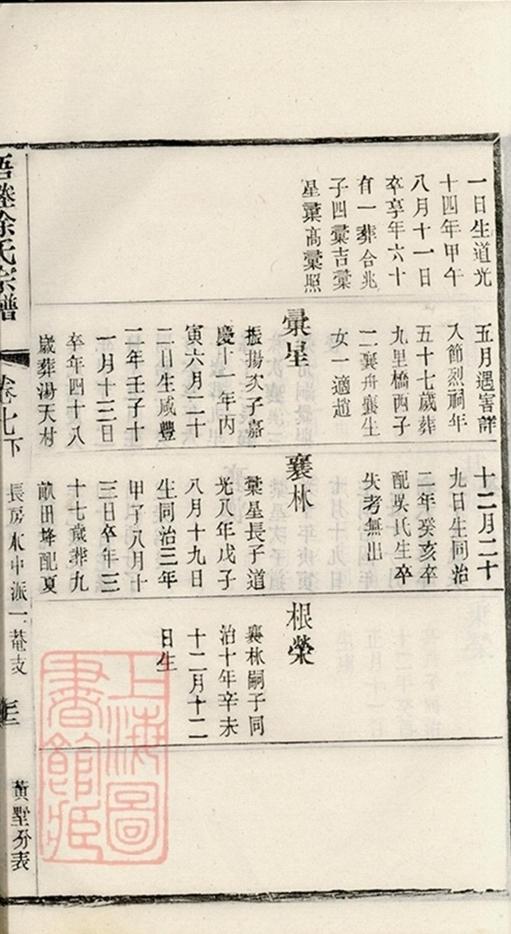 一日生道光
十四年甲午
八月十一日
卒享年六十
有一葬合兆
子四彙吉彙
星彙高彙照
五月遇害詳
入節烈祠年
五十七歲葬
九里橋西子
二襄舟襄生
女一適趙
彙星
振揚次子嘉
慶十一年丙
寅六月二十
二日生咸豐
二年壬子十
一月十三日
卒年四十八
歲葬湯天村
十二月二十
九日生同治
二年癸亥卒
配吳氏生卒
失考無出
襄林
彙星長子道
光八年戊子
八月十九日
生同治三年
甲子八月十
三日卒年三
十七歲葬九
畝田墳配夏
根榮
襄林嗣子同
治十年辛未
十二月十二
日生
徐氏宗譜
卷七下
長房水中派一菴支
黃墅分表
上海圖書館藏